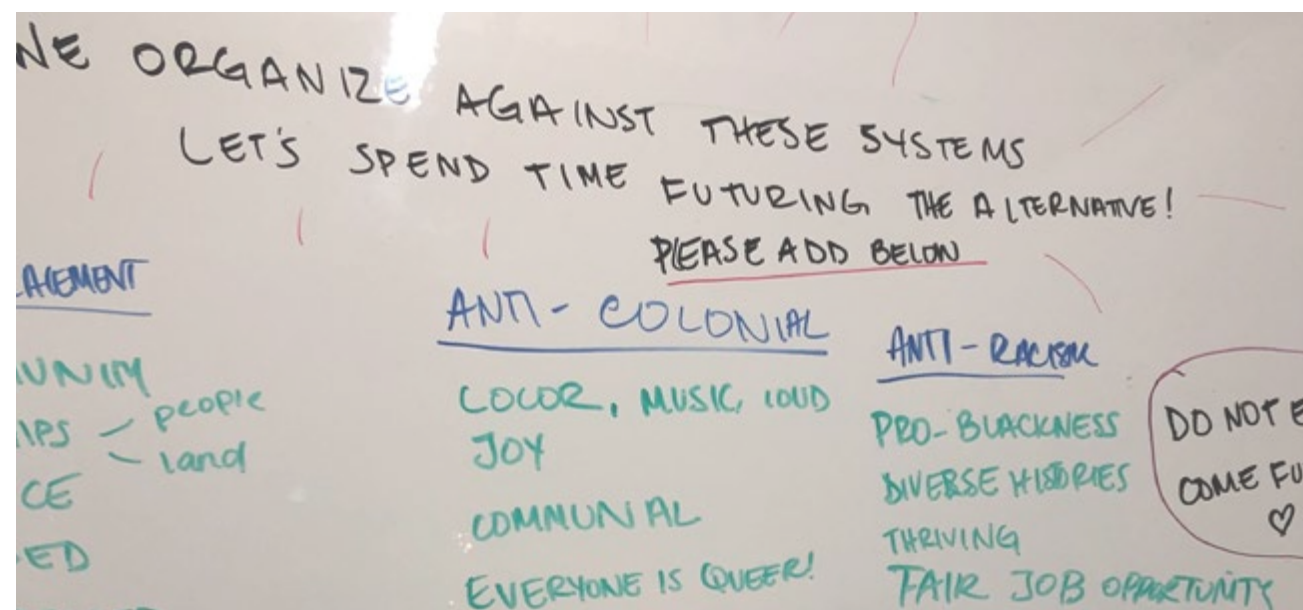 WE ORGANIZE AGAINST THESE SYSTEMS
LET'S SPEND TIME FUTURING THE ALTERNATIVE!
PLEASE ADD BELOW
ACEMENT
UNITY
IPS - people
- land
CE
ED
ANTI-COLONIAL
COLOR, MUSIC, LOUD
JOY
COMMUNAL
EVERYONE IS QUEER!
ANTI-RACISM
PRO-BLACKNESS
DIVERSE HISTORIES
THRIVING
FAIR JOB OPPORTUNITY
DO NOT E
COME FU
♡